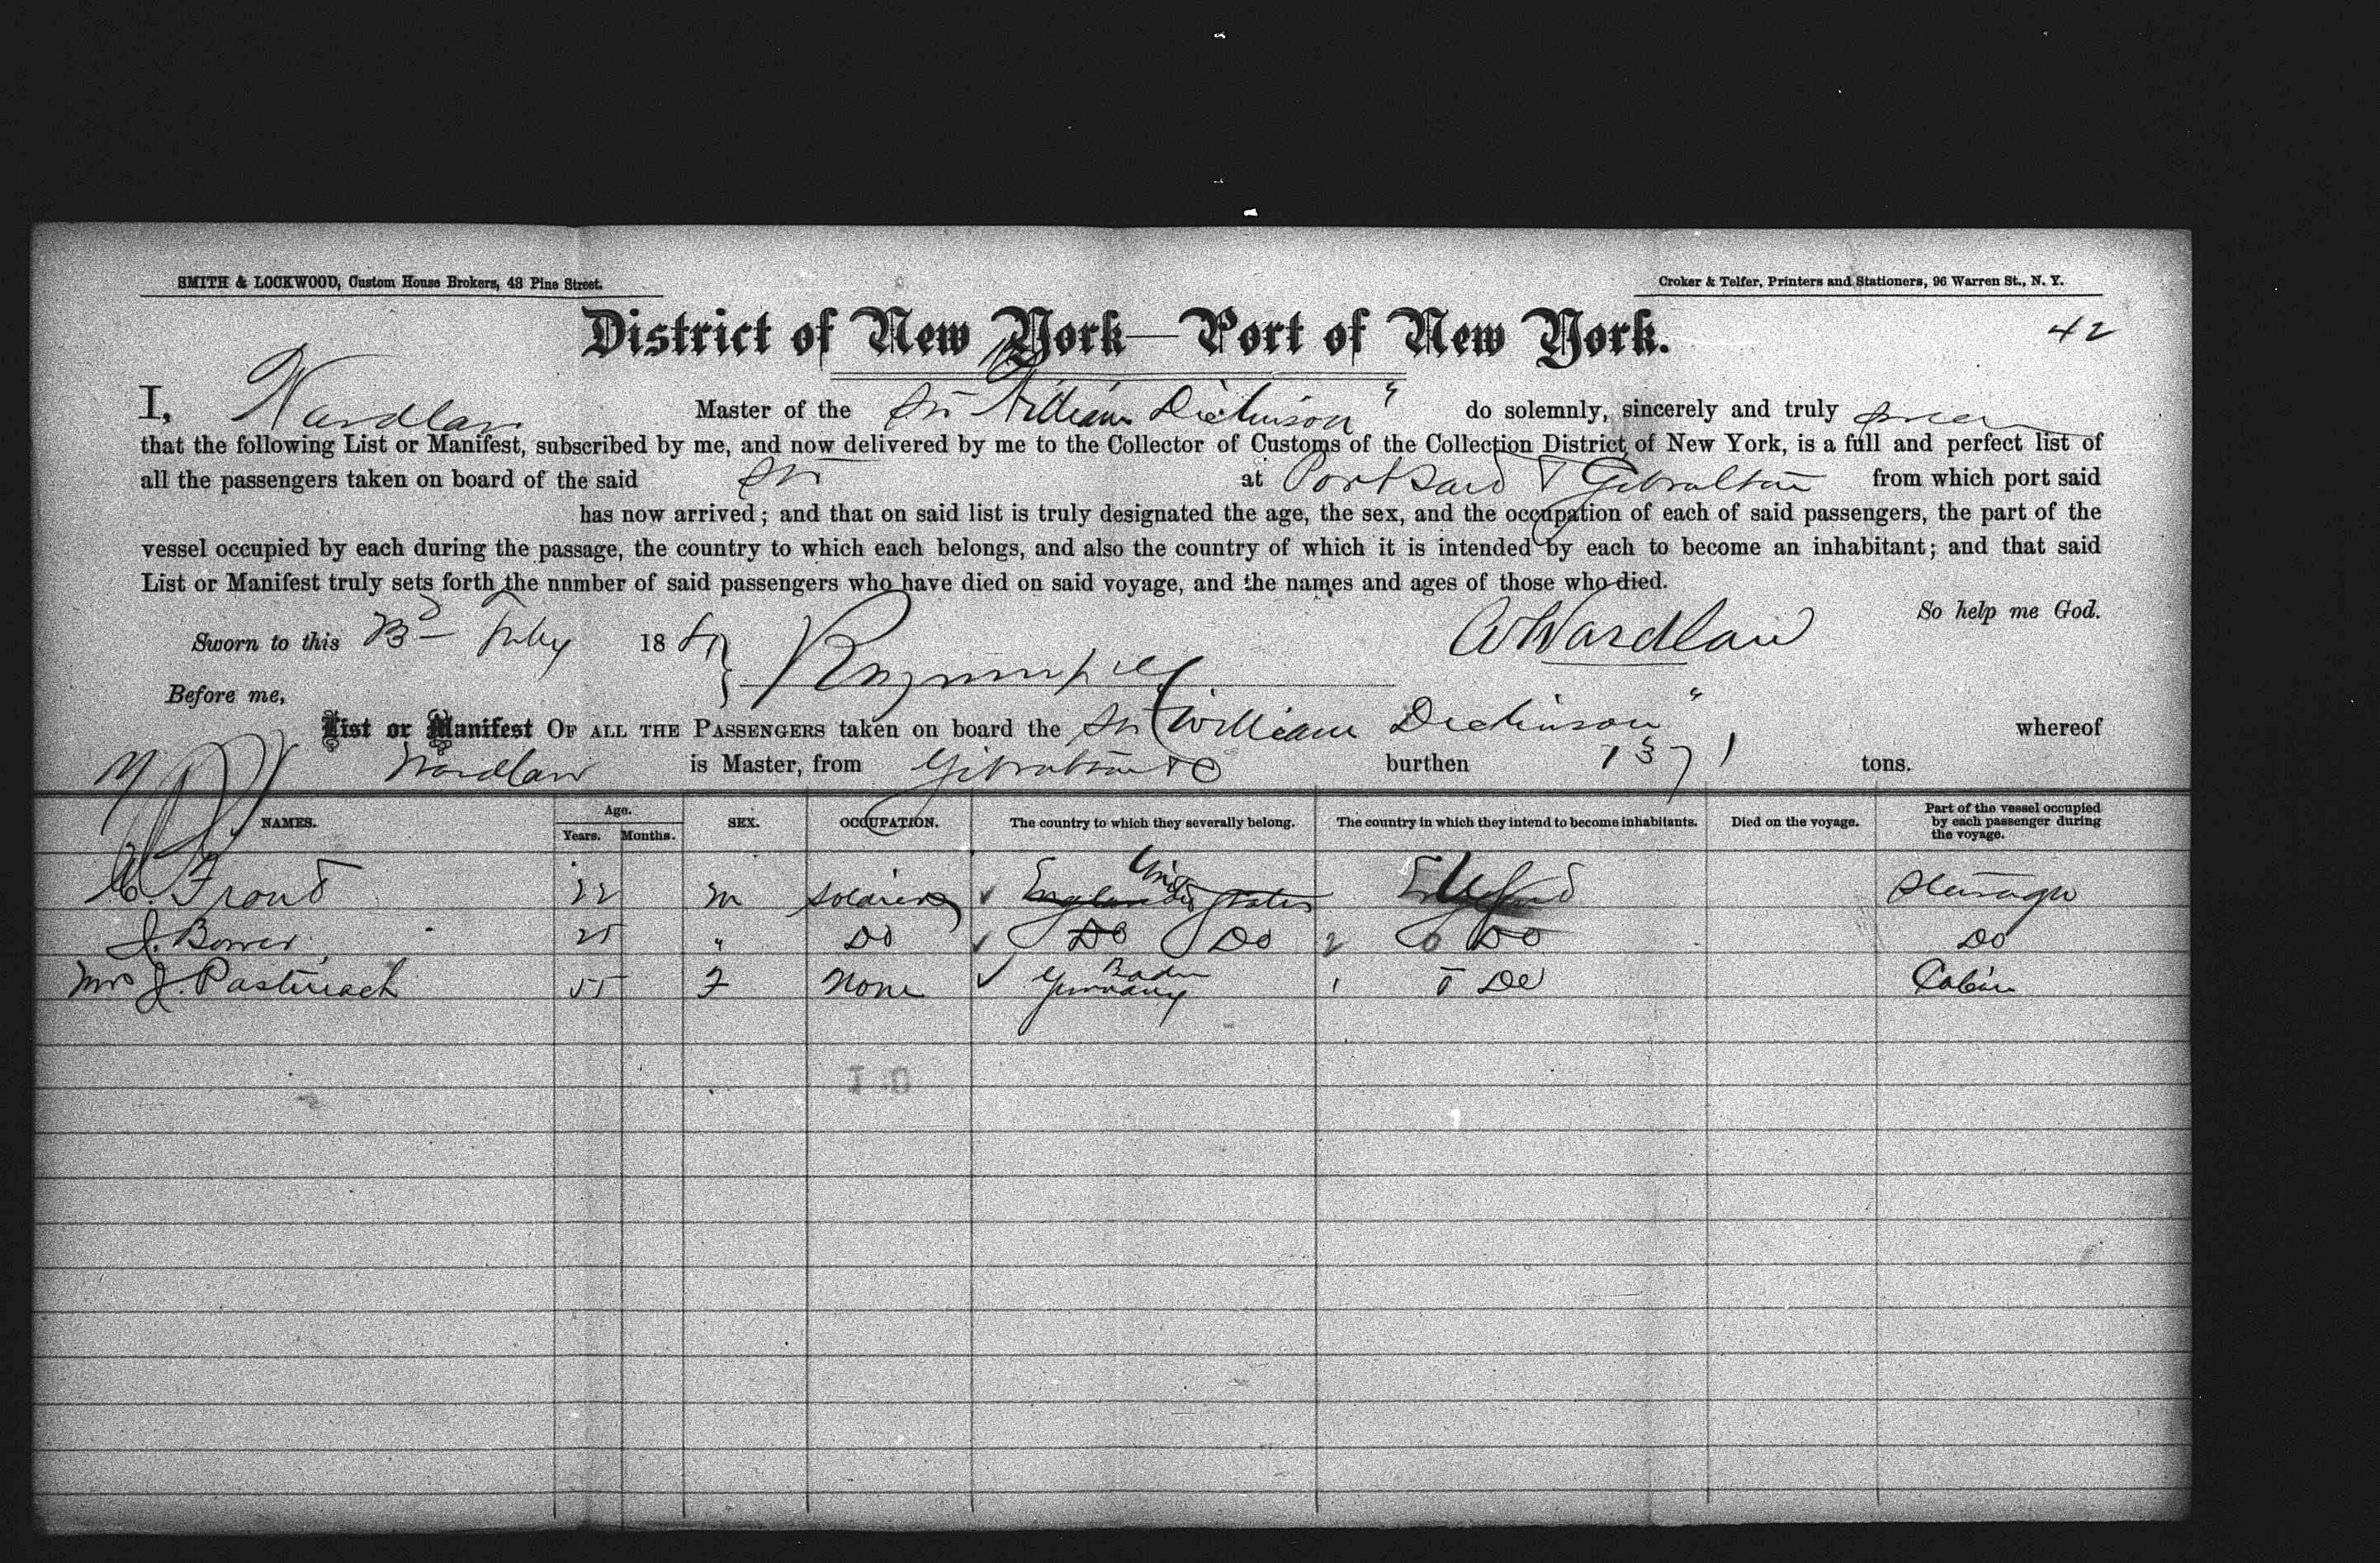 SMITH & LOCKWOOD, Custom House Brokers, 48 Pine Street.
Croker & Telfer, Printers and Stationers, 96 Warren St., N. Y.
District of New York—Port of New York.
42
I, Wardlaw Master of the Str "William Dickinson" do solemnly, sincerely and truly swear
that the following List or Manifest, subscribed by me, and now delivered by me to the Collector of Customs of the Collection District of New York, is a full and perfect list of
all the passengers taken on board of the said Str at Port Said & Gibraltar from which port said
has now arrived; and that on said list is truly designated the age, the sex, and the occupation of each of said passengers, the part of the
vessel occupied by each during the passage, the country to which each belongs, and also the country of which it is intended by each to become an inhabitant; and that said
List or Manifest truly sets forth the number of said passengers who have died on said voyage, and the names and ages of those who died.
So help me God.
Sworn to this July 18 A Wardlaw
Before me,
List or Manifest OF ALL THE PASSENGERS taken on board the Str "William Dickinson" whereof
Wardlaw is Master, from Gibraltar burthen 1371 tons.
NAMES. Age. Years. Months. SEX. OCCUPATION. The country to which they severally belong. The country in which they intend to become inhabitants. Died on the voyage. Part of the vessel occupied by each passenger during the voyage.
Frond 22 m soldier England United States England US Steerage
J. Bower 25 " Do Do Do 2 Do Do
Mrs J. Pasternack 55 F None Baden Germany 1 Do Cabin